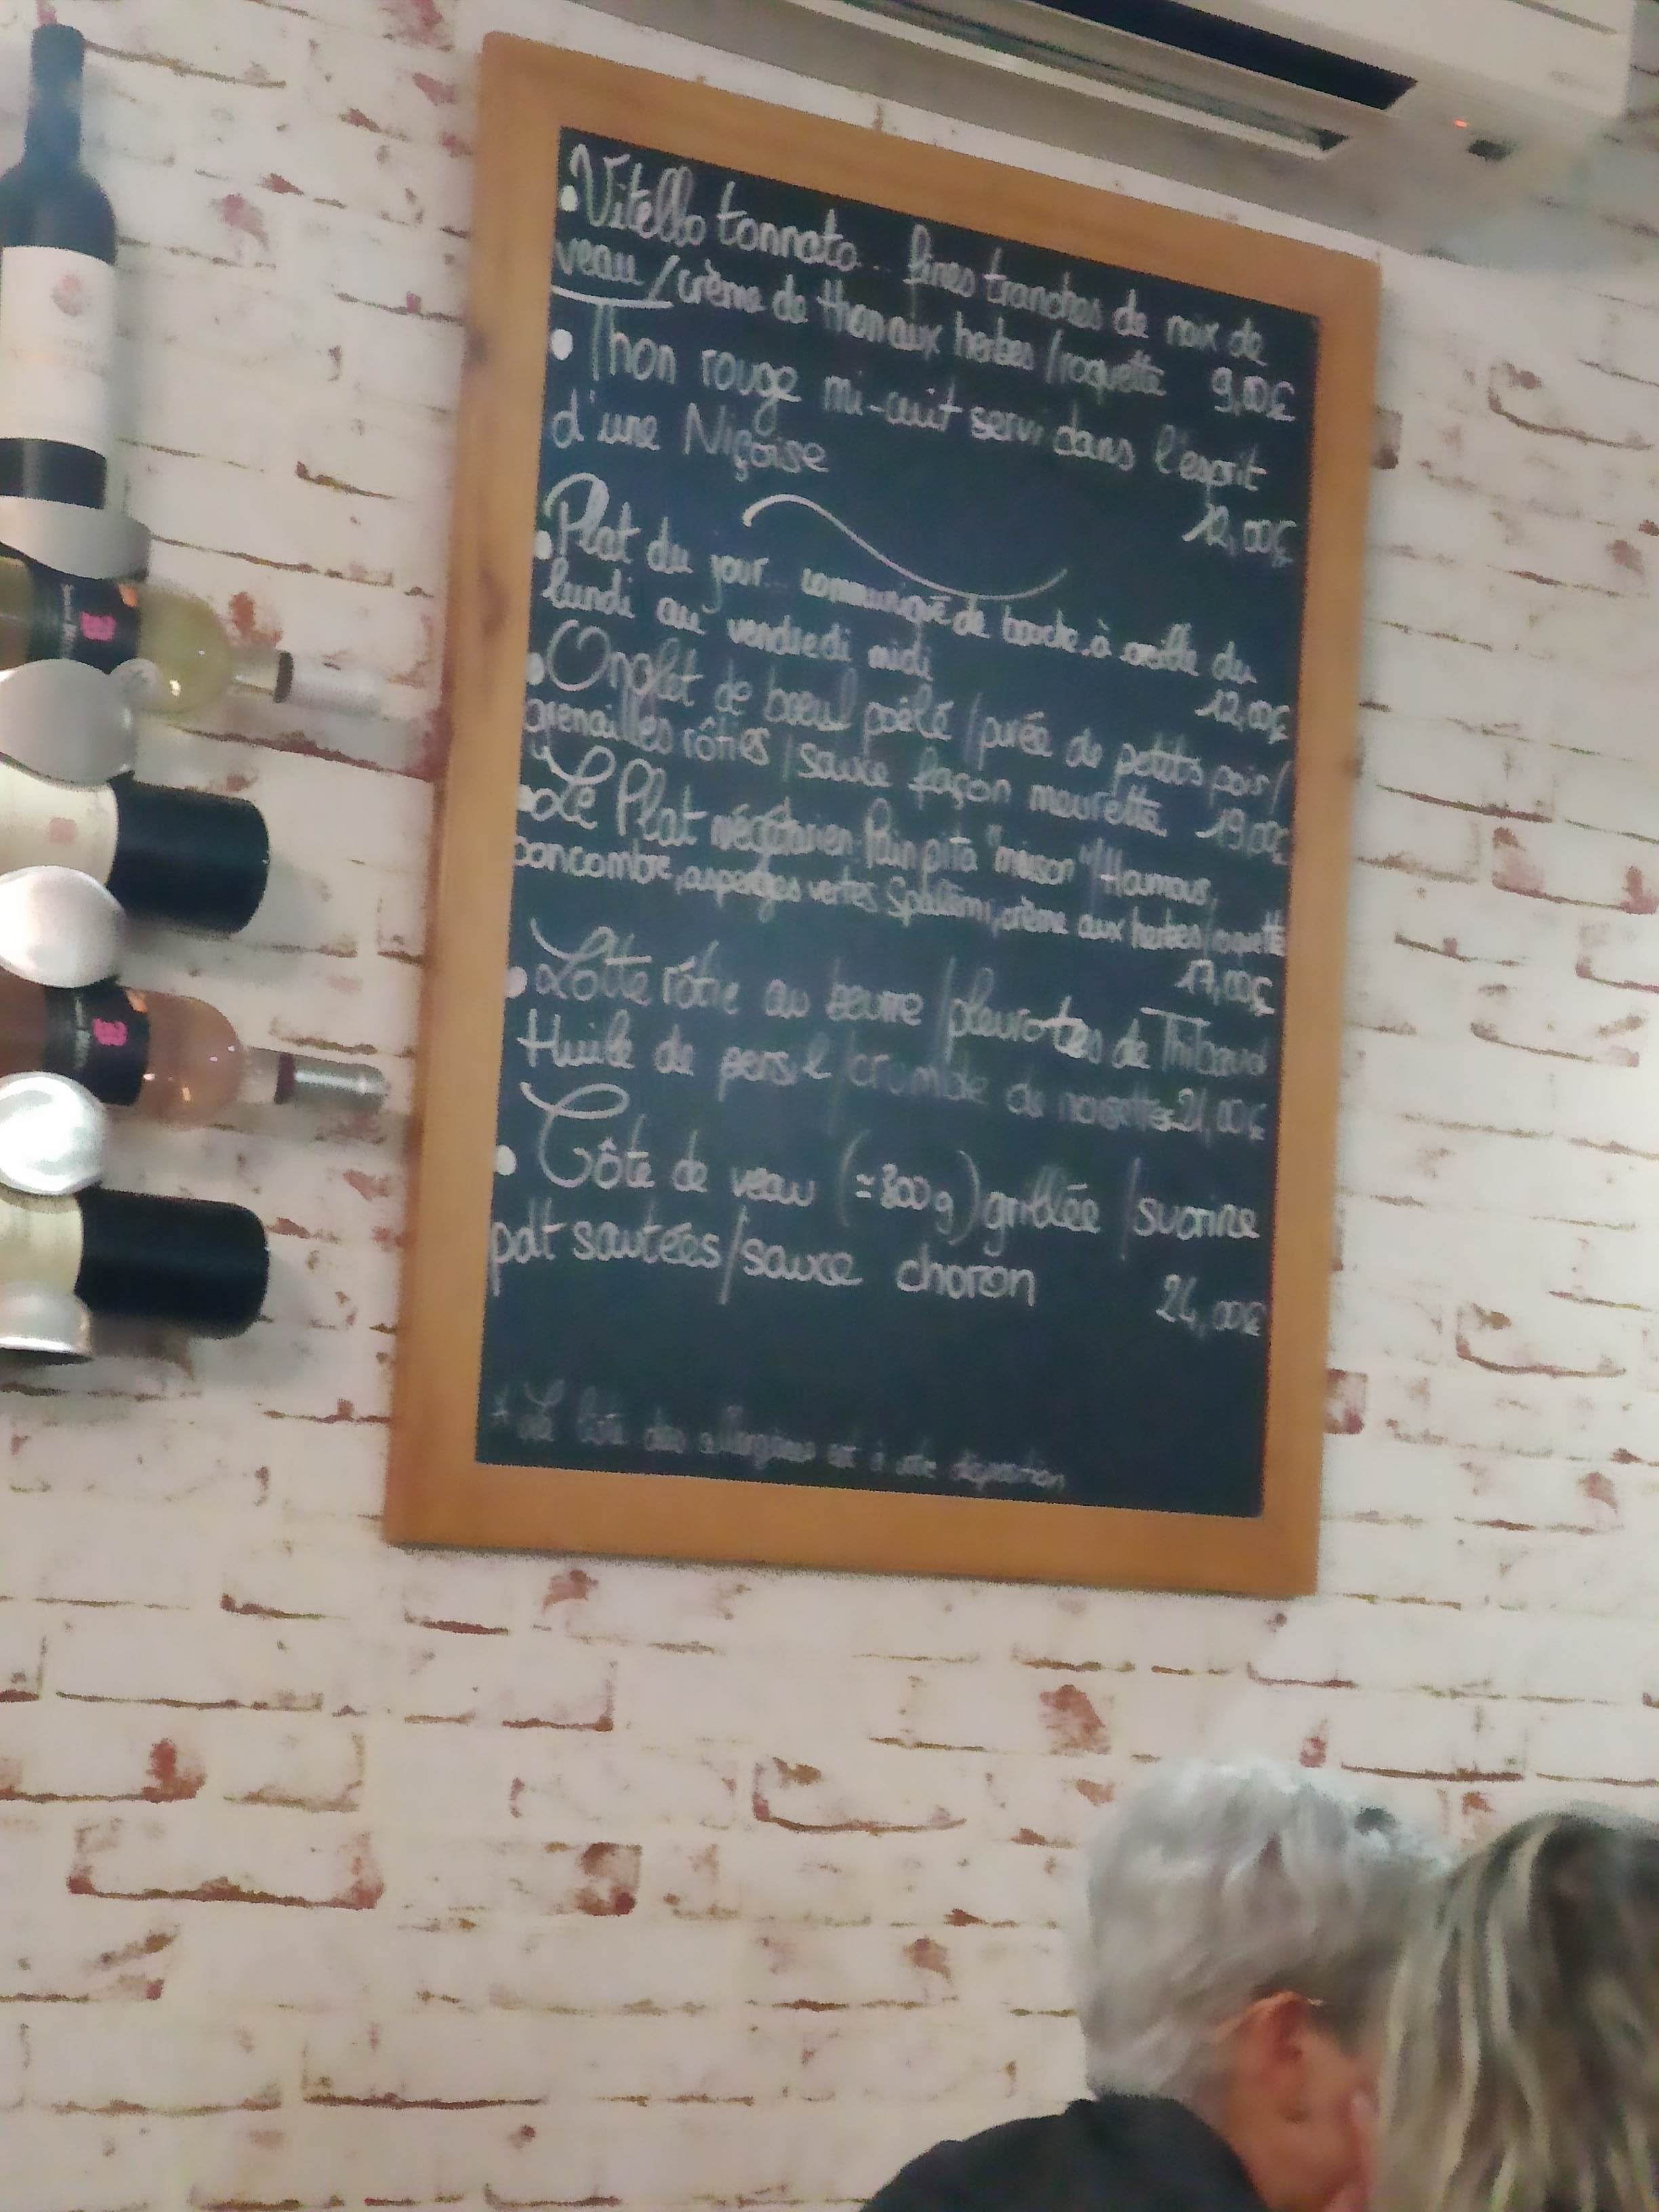 • Vitello tonnato... fines tranches de noix de
veau / crème de thon aux herbes / roquette 9,00€
• Thon rouge mi-cuit servi dans l'esprit
d'une Niçoise
12,00€
• Plat du jour... communiqué de bouche à oreille du
lundi au vendredi midi
12,00€
• Onglet de boeuf poêlé / purée de petits pois /
grenailles rôties / sauce façon meurette 19,00€
• Le Plat végétarien: Pain pita "maison" / Houmous,
concombre, asperges vertes, crème aux herbes / roquette
17,00€
• Lotte rôtie au beurre / pleurotes de Thibaud
Huile de persil / crumble de noisettes 21,00€
• Côte de veau (≃300g) grillée / sucrine
pdt sautées / sauce choron
24,00€
* La liste des allergènes est à votre disposition